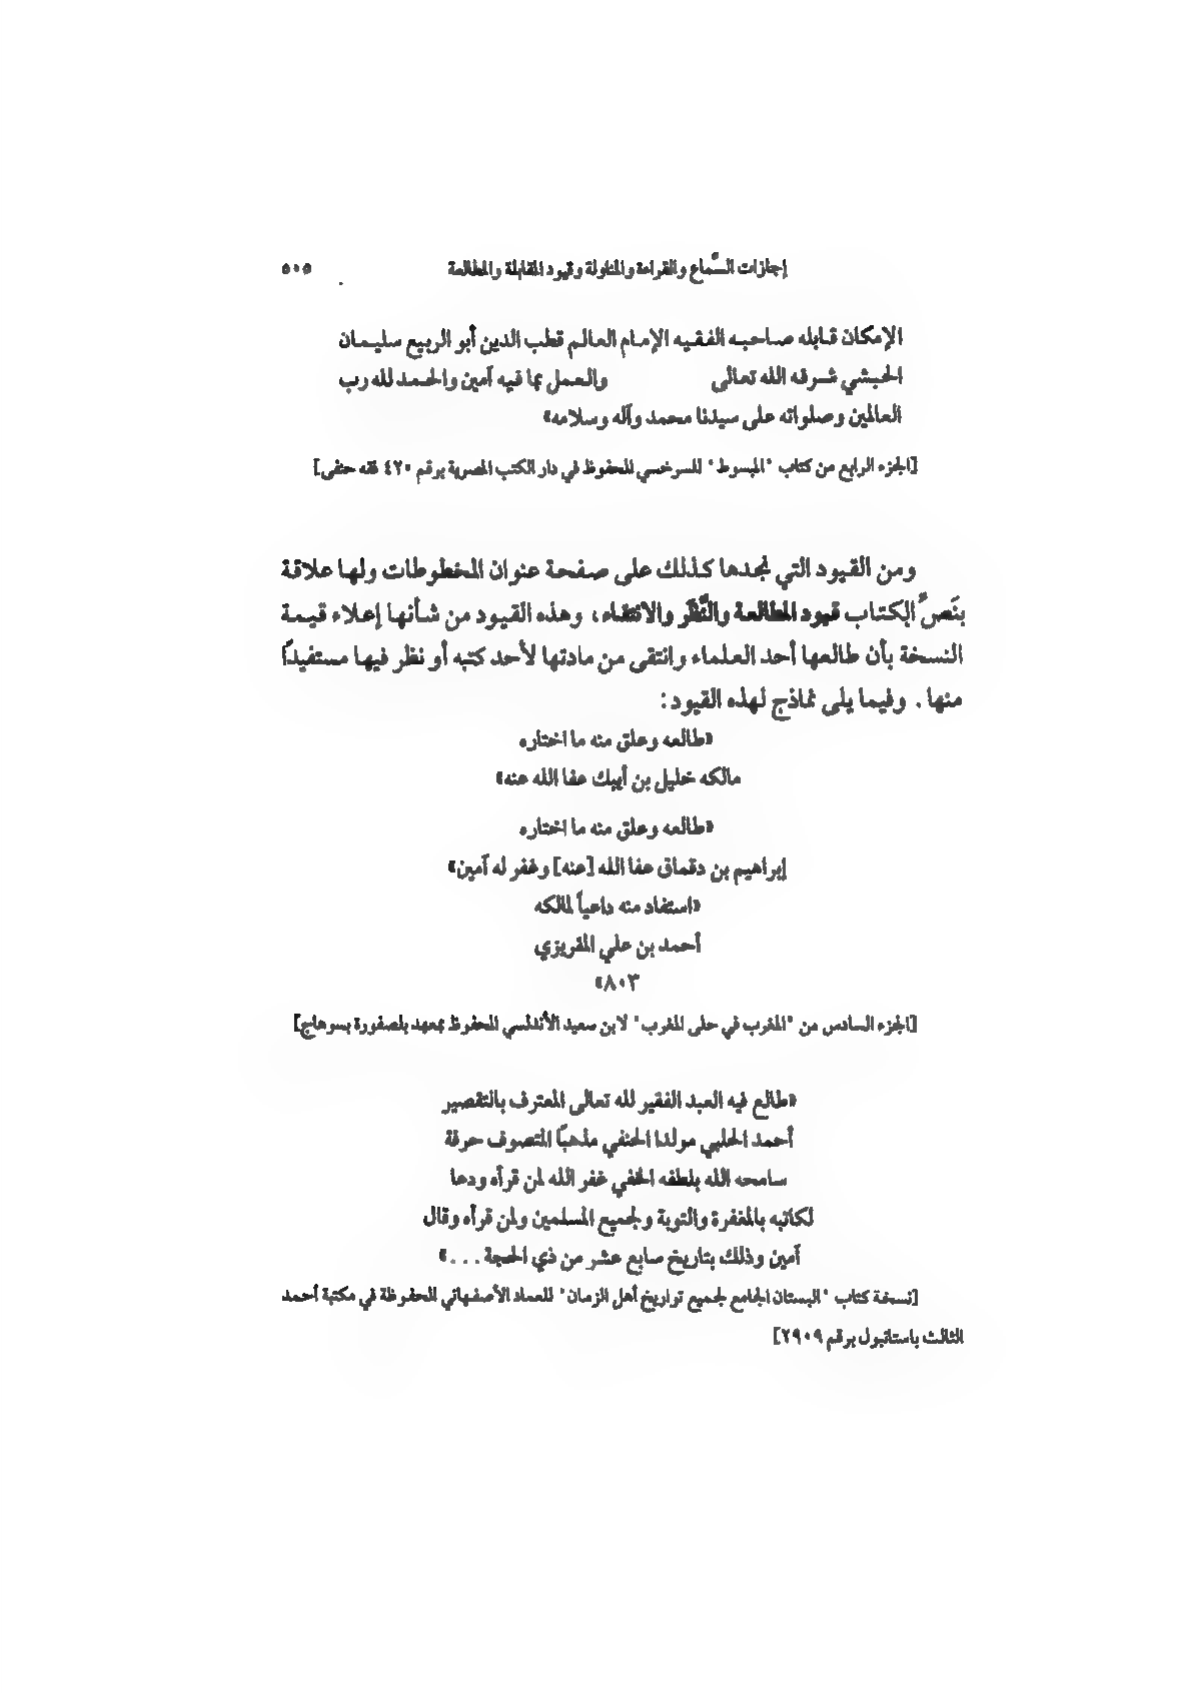 إجازات السَّماع والقراءة والمناولة وقيود المقابلة والمطالعة ٥٠٥
الإمكان قابله صاحبه الفقيه الإمام العالم قطب الدين أبو الربيع سليمان
الحبشي شرفه الله تعالى والعمل بما فيه آمين والحمد لله رب
العالمين وصلواته على سيدنا محمد وآله وسلامه»
[الجزء الرابع من كتاب "المبسوط" للسرخسي المحفوظ في دار الكتب المصرية برقم ٤٢٠ فقه حنفى]
ومن القيود التي نجدها كذلك على صفحة عنوان المخطوطات ولها علاقة
بنَصِّ الكتاب قيود المطالعة والنَّظَر والانتقاء، وهذه القيود من شأنها إعلاء قيمة
النسخة بأن طالعها أحد العلماء وانتقى من مادتها لأحد كتبه أو نظر فيها مستفيدًا
منها. وفيما يلى نماذج لهذه القيود:
«طالعه وعلق منه ما اختاره
مالكه خليل بن أيبك عفا الله عنه»
«طالعه وعلق منه ما اختاره
إبراهيم بن دقماق عفا الله [عنه] وغفر له آمين»
«استفاد منه داعياً لمالكه
أحمد بن علي المقريزي
٨٠٣»
[الجزء السادس من "المغرب في حلى المغرب" لابن سعيد الأندلسي المحفوظ بمعهد بلصفورة بسوهاج]
«طالع فيه العبد الفقير لله تعالى المعترف بالتقصير
أحمد الحلبي مولدا الحنفي مذهبًا المتصوف حرفة
سامحه الله بلطفه الخفي غفر الله لمن قرآه ودعا
لكاتبه بالمغفرة والتوبة ولجميع المسلمين ولمن قرآه وقال
آمين وذلك بتاريخ سابع عشر من ذي الحجة...»
[نسخة كتاب "البستان الجامع لجميع تواريخ أهل الزمان" للعماد الأصفهاني المحفوظة في مكتبة أحمد
الثالث باستانبول برقم ٢٩٠٩]